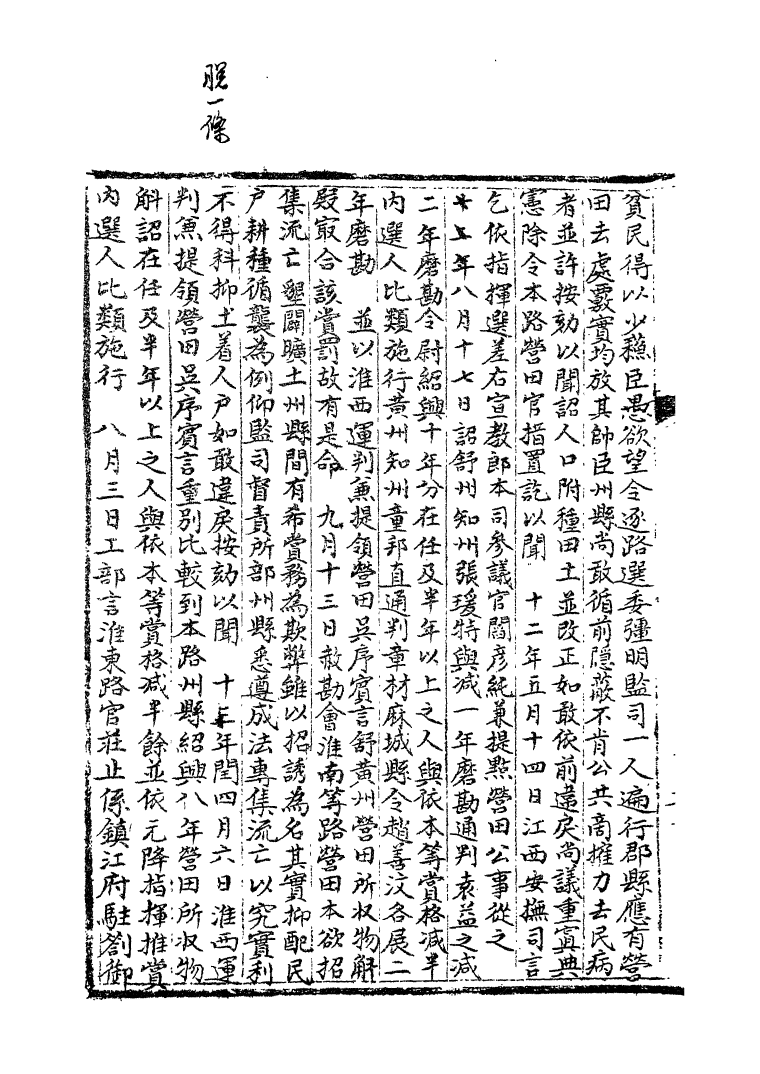 脫一條
貧民得以少蘇臣愚欲望令逐路選委彊明監司一人遍行郡縣應有營
田去處覈實均放其帥臣州縣尚敢循前隱蔽不肯公共商搉力去民病
者並許按劾以聞詔人口附種田土並改正如敢依前違戾尚議重寘典
憲除令本路營田官措置訖以聞　十二年五月十四日江西安撫司言
乞依指揮選差右宣教郎本司參議官閻彥純兼提點營田公事從之
年八月十七日詔舒州知州張瑗特與減一年磨勘通判袁益之減
二年磨勘令尉紹興十年分在任及半年以上之人與依本等賞格減半
內選人比類施行黃州知州童邦直通判章材麻城縣令趙善汶各展二
年磨勘　並以淮西運判兼提領營田吳序賓言舒黃州營田所收物斛
殿最合該賞罰故有是命　九月十三日赦勘會淮南等路營田本欲招
集流亡墾闢曠土州縣間有希賞務為欺弊雖以招誘為名其實抑配民
戶耕種循襲為例仰監司督責所部州縣悉遵成法專集流亡以究實利
不得科抑土着人戶如敢違戾按劾以聞　十三年閏四月六日淮西運
判兼提領營田吳序賓言重別比較到本路州縣紹興八年營田所收物
斛詔在任及半年以上之人與依本等賞格減半餘並依元降指揮推賞
內選人比類施行　八月三日工部言淮東路官莊止係鎮江府駐劄御